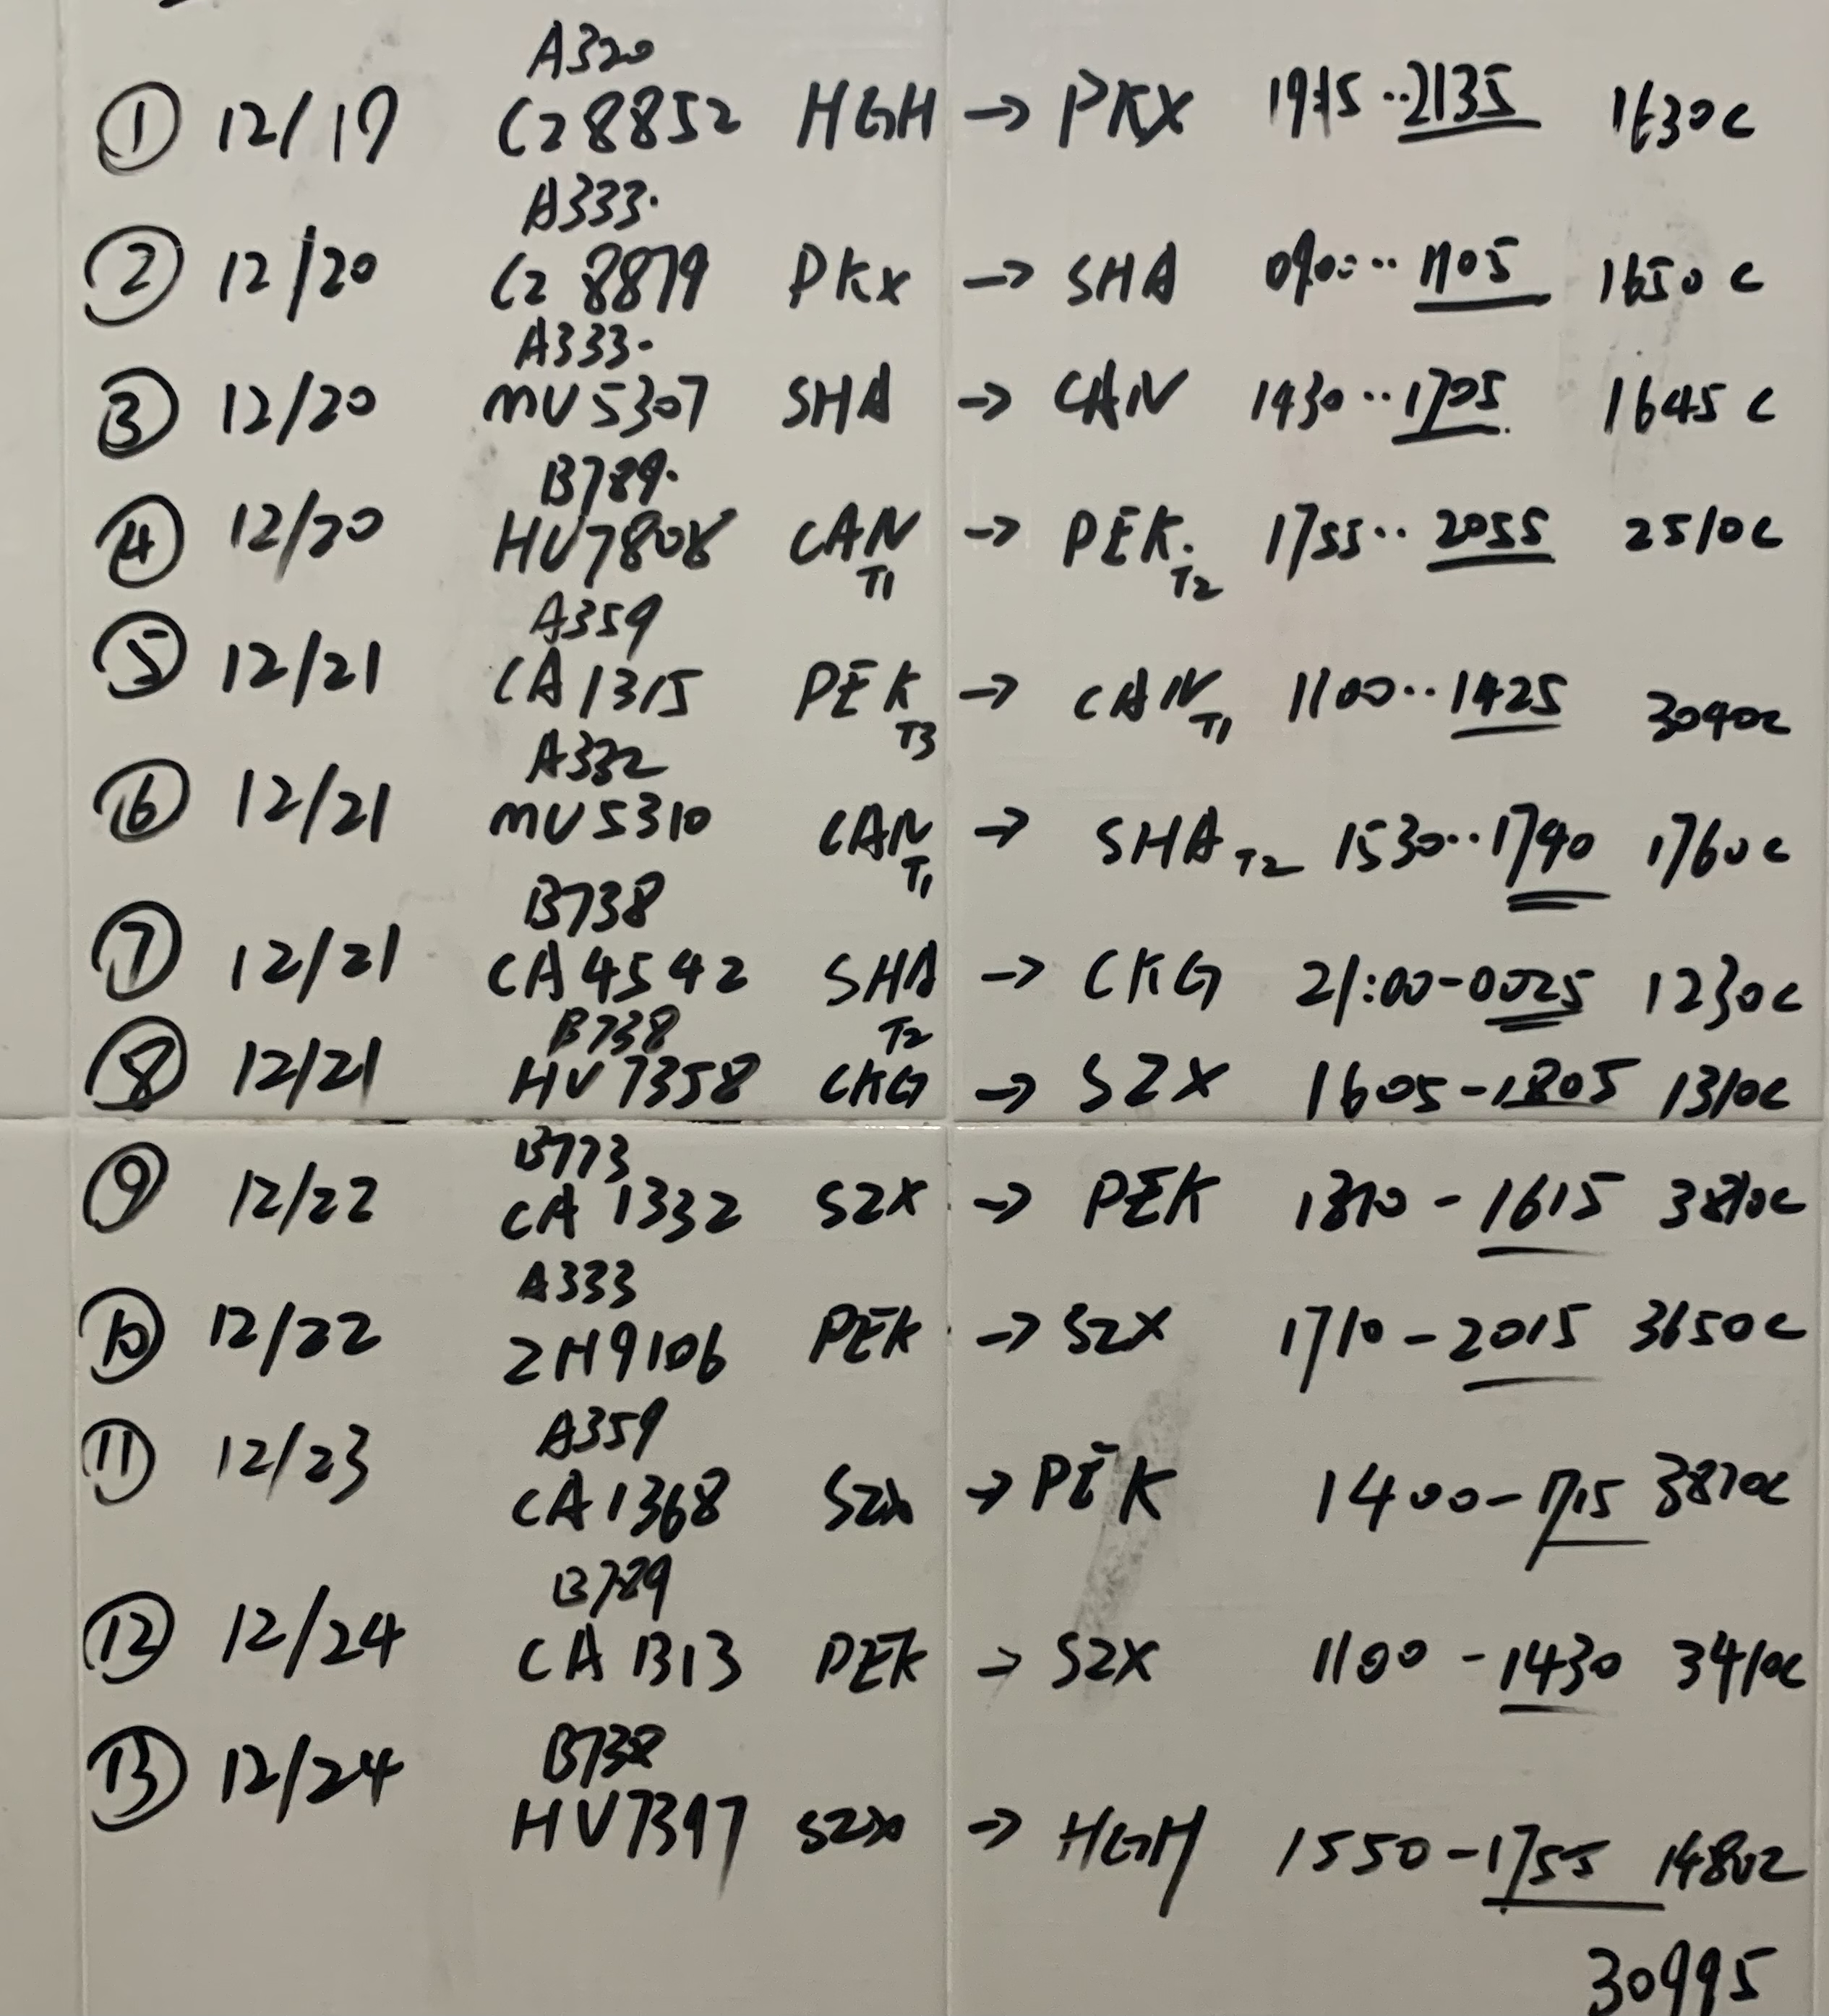 A320
① 12/19 CZ8852 HGH → PKX 1915··2135 1630c
A333·
② 12/20 CZ 8879 PKX → SHA 0900··1105 1650c
A333·
③ 12/20 MU5307 SHA → CAN 1430··1705 1645c
B789·
④ 12/20 HU7808 CAN T1 → PEK· T2 1755··2055 2510c
A359
⑤ 12/21 CA1315 PEK T3 → CAN T1 1100··1425 3040c
A332
⑥ 12/21 MU5310 CAN T1 → SHA T2 1530··1740 1760c
B738
⑦ 12/21 CA4542 SHA T2 → CKG 21:00-0025 1230c
B738
⑧ 12/21 HU7358 CKG → SZX 1605-1805 1310c
B773
⑨ 12/22 CA 1332 SZX → PEK 1310-1615 3810c
A333
⑩ 12/22 ZH9106 PEK → SZX 1710-2015 3650c
A359
⑪ 12/23 CA1368 SZX → PEK 1400-1715 3870c
B789
⑫ 12/24 CA 1313 PEK → SZX 1100-1430 3410c
B738
⑬ 12/24 HU7397 SZX → HGH 1550-1755 1480c
30995